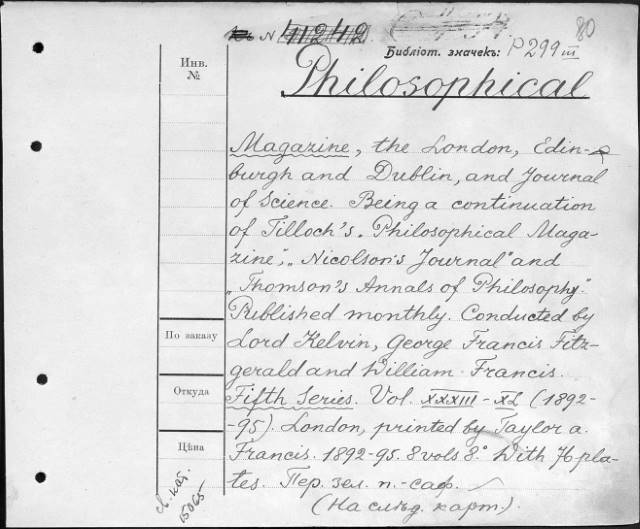 N 11242 80
Библіот. значекъ: P 299 III
Инв.
№
Philosophical
Magazine, the London, Edin-
burgh and Dublin, and Journal
of Science. Being a continuation
of Tilloch's „Philosophical Maga-
zine", „Nicolson's Journal" and
„Thomson's Annals of Philosophy."
Published monthly. Conducted by
По заказу
Lord Kelvin, George Francis Fitz-
gerald and William Francis.
Откуда
Fifth Series. Vol. XXXIII-XL (1892-
95). London, printed by Taylor a.
Цѣна
Francis. 1892-95. 8 vols 8°. With 76 pla-
tes. Пер. зел. п.-саф.
(На слѣд. карт.).
15065